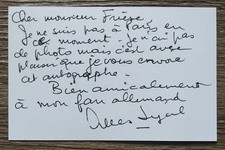 Cher monsieur Friese,
Je ne suis pas à Paris en
ce moment - Je n'ai pas
de photo mais c'est avec
plaisir que je vous envoie
cet autographe -
Bien amicalement
à mon fan allemand